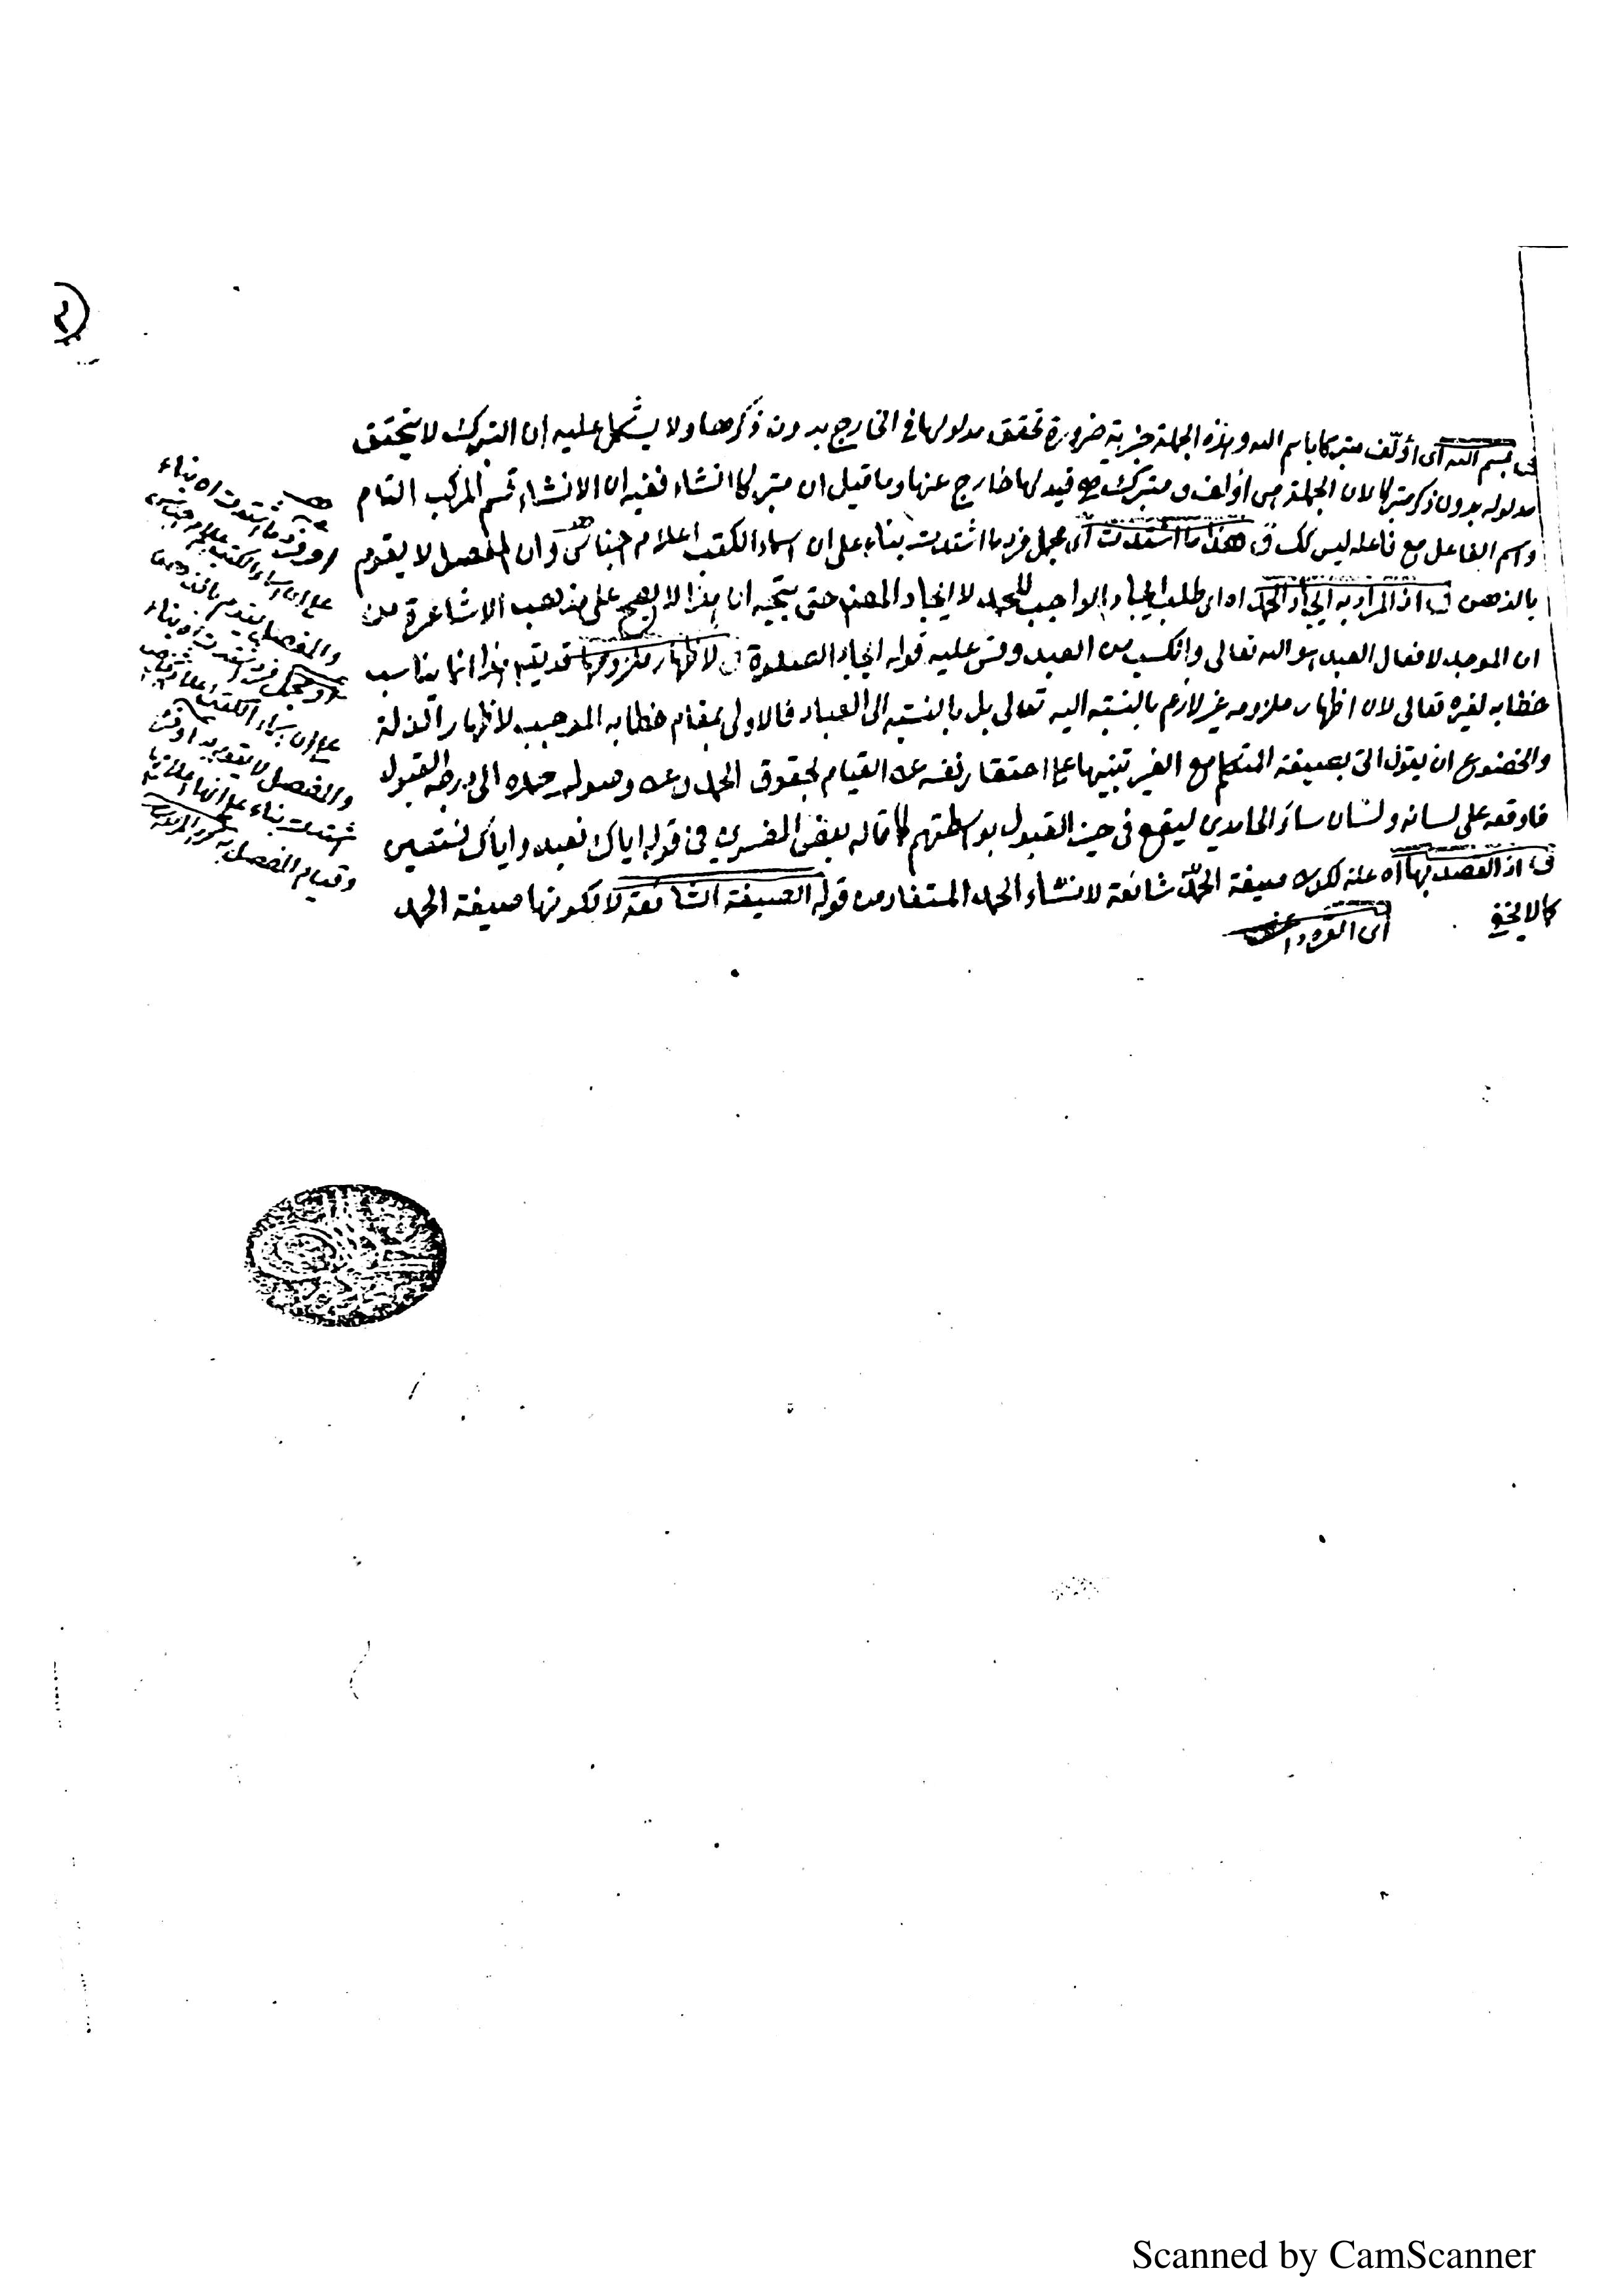 بسم الله أى أؤلف متبركا باسم الله وهذه الجملة خبرية ضرورة تحقق مدلولها فى الخارج بدون ذكرها ولا يشكل عليه ان التبرك لا يتحقق
مدلوله بدون ذكر متبركا لان الجملة هى اؤلف ومتبركا قيد لها خارج عنها وما قيل ان متبركا انشاء ففيه ان الانشاء قسم المركب التام
واسم الفاعل مع فاعله ليس كك ق هذا ما اشتدت أى مجمل فرد ما اشتدت بناء على ان اسماء الكتب اعلام اجناس وان المفصل لا يقوم
بالذهن ق اذ المراد به ايجاد الحمد اه اى طلب ايجاد الواجب للحمد لا ايجاد المصنف حتى يتجه ان هذا لا يصح على مذهب الاشاعرة من
ان الموجد لافعال العبد هو الله تعالى والكسب من العبد وقس عليه قوله ايجاد الصلوة ق لاظهار ملزومها قد يتجه هذا انما يناسب
خطابه لغيره تعالى لان اظهار ملزومه غير لازم بالنسبة اليه تعالى بل بالنسبة الى العباد فالاولى بمقام خطابه الموجب لاظهار الذلة
والخضوع ان يقول اتى بصيغة المتكلم مع الغير تنبيها على احتقار نفسه عن القيام بحقوق الحمد وعن وصول حمده الى درجة القبول
فاوقعه على لسانه ولسان سائر الحامدين ليقع فى حيز القبول بواسطتهم كما قاله بعض المفسرين فى قوله اياك نعبد واياك نستعين
ق اذ القصد بها اه علة لكون صيغة الحمد شائعة لانشاء الحمد المستفاد من قوله الصيغة الشائعة لا لكونها صيغة الحمد
كما لا يخفى
او فرد ما اشتدت اه بناء
على ان اسماء الكتب علم جنس
والمفصل يقوم بالذهن
او مجمل فرد اشتدت اه بناء
على ان اسماء الكتب اعلام
والمفصل لا يقوم به او نفس
اشتدت بناء على انها اعلام
وقيام المفصل به
Scanned by CamScanner